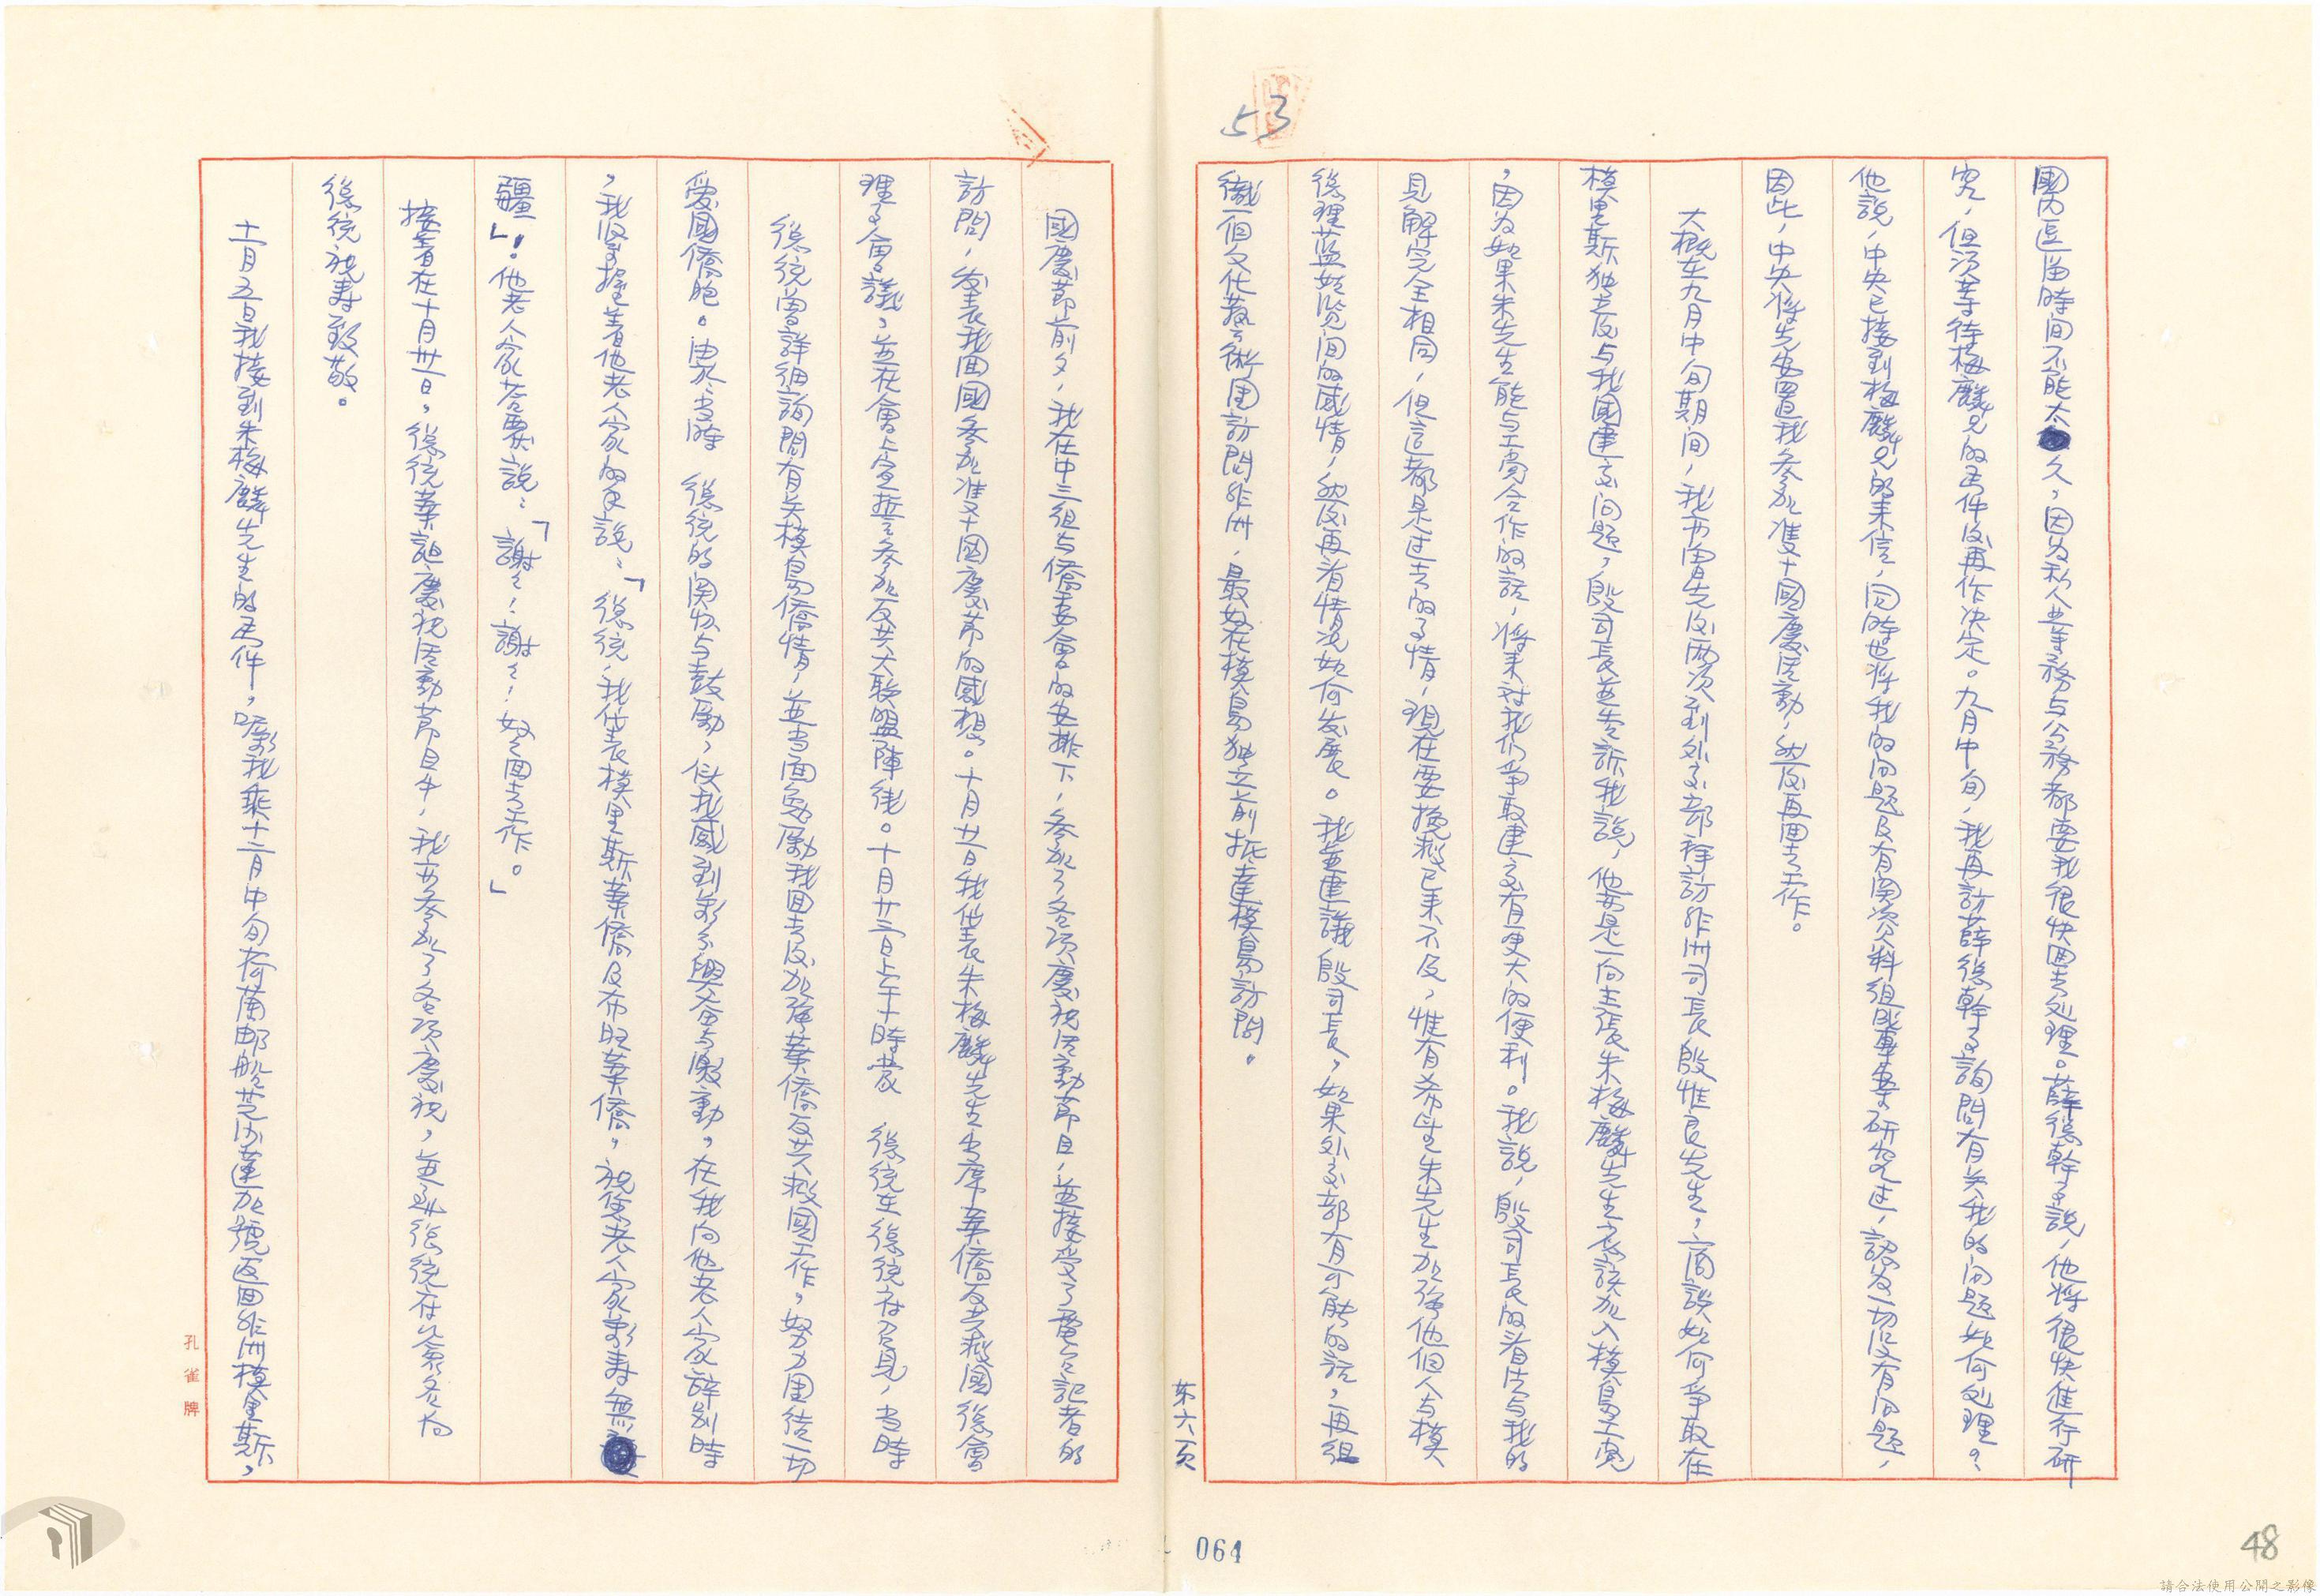 53
國內逗留時間不能太久，因為私人業務与公務都要我很快回去処理。薛總幹事說，他将很快進行研
究，但須等待梅麟兄的函件後再作决定。九月中旬，我再訪薛總幹事詢問有关我的问題如何処理？
他說，中央已接到梅麟兄的来信，同時也将我的问題及有関資料組成專案研究过，認为一切沒有问題，
因此，中央将先安置我参加雙十國慶活動，然後再回去工作。
大概在九月中旬期间，我亦曾先後兩次到外交部拜訪非洲司長殷惟良先生，商談如何爭取在
模里斯独立後与我國建交问題，殷司長並告訴我說，他要是一向主張朱梅麟先生应該加入模島工党
，因为如果朱先生能与工党合作的話，将来对我们爭取建交有更大的便利。我說，殷司長的看法与我的
見解完全相同，但這都是过去的事情，現在要挽救已来不及，惟有希望朱先生加强他個人与模
總理藍姑浪间的感情，然後再看情况如何发展。我並建議殷司長，如果外交部有可能的話，再組
織一個文化藝術団訪問非洲，最好在模島独立前抵達模島訪問。
第六頁
國慶節前夕，我在中三組与僑委會的安排下，参加了各項慶祝活動節目，並接受了電台記者的
訪問，发表我回國参加雙十國慶節的感想。十月廿一日我代表朱梅麟先生出席華僑反共救國總會
理事會議，並在會上宣誓参加反共大聯盟陣线。十月廿三日上午十時蒙　總統在總統府召見，当時
總統曾詳细詢問有关模島僑情，並当面勉勵我回去後加强華僑反共救國工作，努力団结一切
愛國僑胞。由於当時　總統的関怀与鼓勵，使我感到萬分興奋与激動，在我向他老人家辞别時
，我緊握着他老人家的手說：「總統，我代表模里斯華僑及布旺華僑，祝您老人家萬壽無
疆」！他老人家荅覆說：「謝々！謝々！好好回去工作。」
接着在十月卅一日，總統華誕慶祝活動節目中，我亦参加了各項慶祝，並到總統府簽名向
總統祝壽致敬。
十一月五日我接到朱梅麟先生的函件，囑我乘十二月中旬荷蘭郵船芝沙蓮加號返回非洲模里斯，
孔雀牌
064
48
請合法使用公開之影像